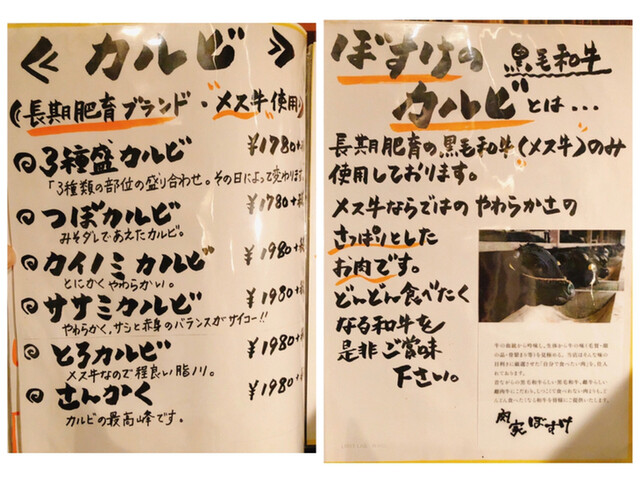 ≪ カルビ ≫
(長期肥育ブランド・メス牛使用)
3種盛カルビ ¥1780+税
「3種類の部位の盛り合わせ。その日によって変わります。
つぼカルビ ¥1780+税
みそダレであえたカルビ。
カイノミカルビ ¥1980+税
とにかくやわらかい。
ササミカルビ ¥1980+税
やわらかく、サシと赤身のバランスがサイコー!!
とろカルビ ¥1980+税
メス牛なので程良い脂ノリ。
さんかく ¥1980+税
カルビの最高峰です。
ぼすけの 黒毛和牛
カルビとは...
長期肥育の黒毛和牛(メス牛)のみ
使用しております。
メス牛ならではの やわらかさの
さっぱりとした
お肉です。
どんどん食べたく
なる和牛を
是非ご賞味
下さい。
肉家 ぼすけ